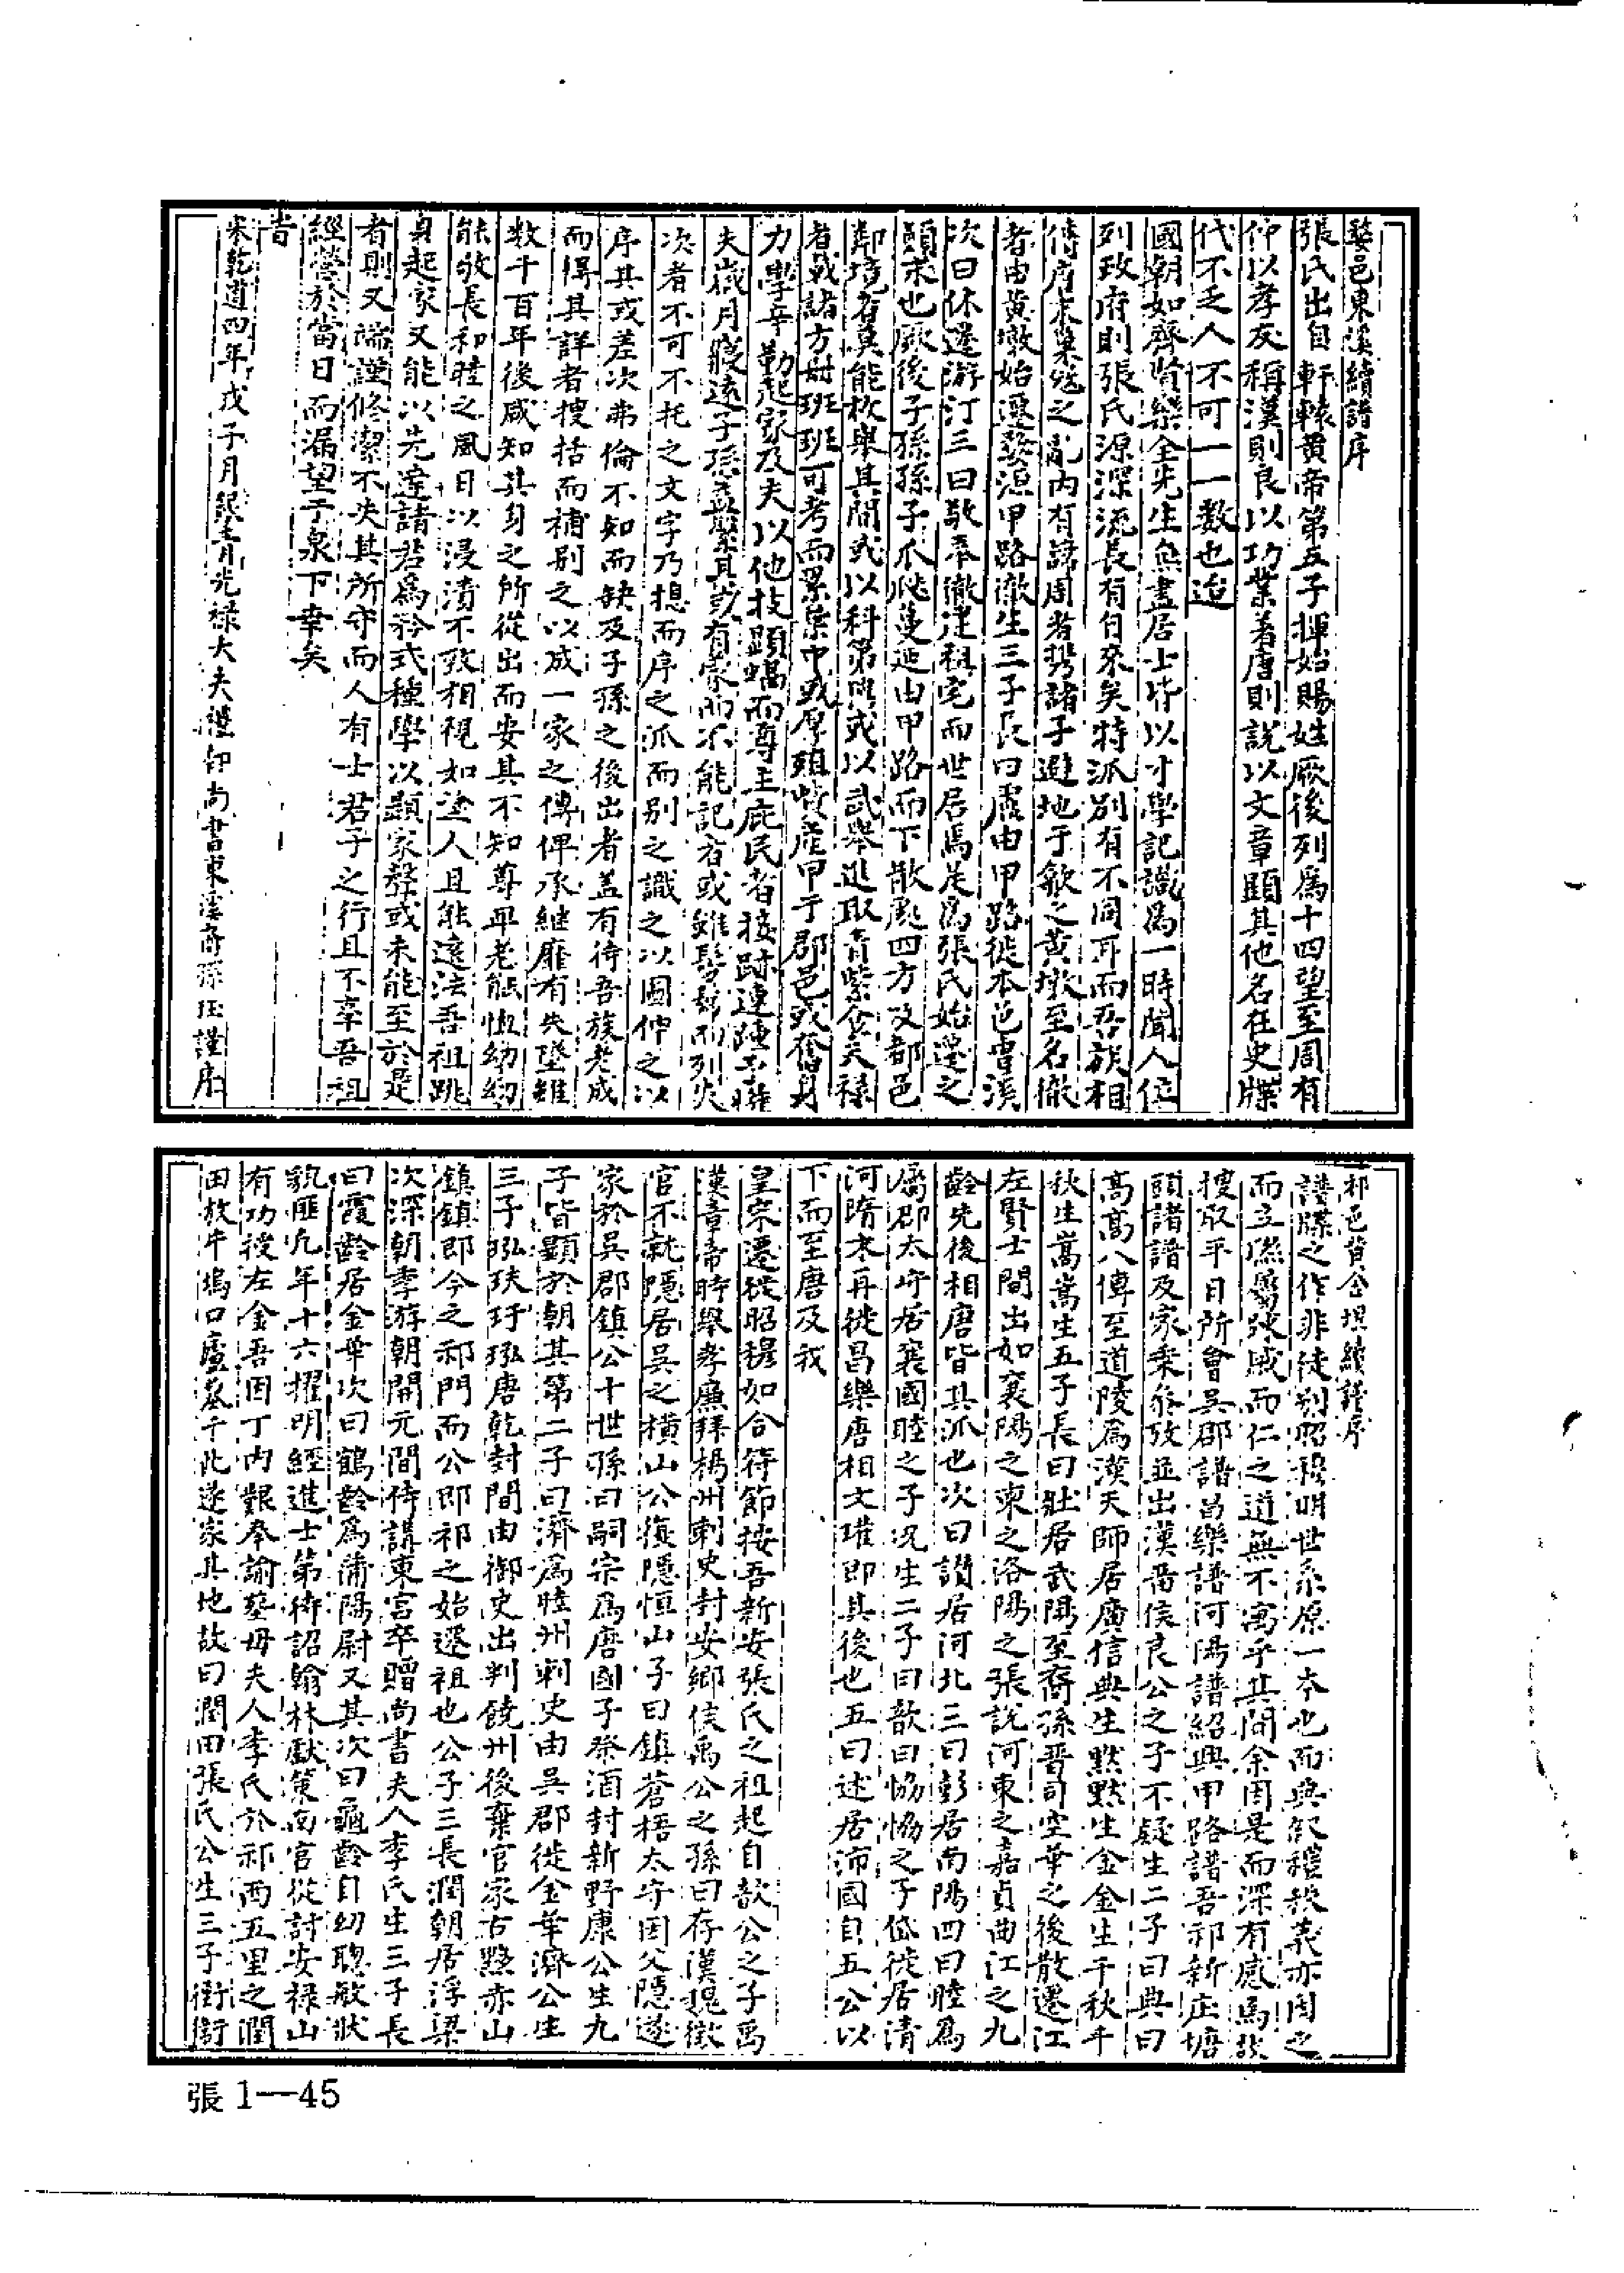 婺邑東溪續譜序
張氏出自軒轅黃帝第五子揮始賜姓厥後列爲十四望至周有
仲以孝友稱漢則良以功業著唐則說以文章顯其他名在史牒
代不乏人不可一一數也迨
國朝如齊賢樂全先生無盡居士皆以才學記識爲一時聞人位
列政府則張氏源深流長有自來矣特派別有不同耳而吾族相
傳唐末巢寇之亂內有諱周者携諸子避地于歙之黃墩至名徹
者由黃墩始遷婺源甲路徹生三子長曰延由甲路徙本邑曹溪
次曰休遷游汀三曰敬奉徹遺祖宅而世居焉是爲張氏始遷之
顛末也厥後子孫孫子瓜瓞蔓延由甲路而下散處四方及都邑
鄰境者莫能枚舉其間或以科第顯或以武舉進取青紫金矣祿
者載諸方冊班班可考而纍纍中或厚殖貲產甲于郡邑或奮身
力學辛勤起家及夫以他技顯蝎而尊主庇民者接跡連踵予雖
夫歲月寖遠子孫益繁其或有蒙而不能記者或雖髣髴而列失
次者不可不托之文字乃摠而序之派而別之識之以圖伸之以
序其或差次弗倫不知而缺及子孫之後出者盖有待吾族老成
而得其詳者搜括而補別之以成一家之傳俾承繼靡有失墜雖
數千百年後咸知其身之所從出而安其不知尊卑老能恤幼幼
能敬長和睦之風日以浸淸不致相視如塗人且能遠法吾祖跣
身起家又能以先達諸君爲矜式種學以顯家聲或未能至於是
者則又端謹修潔不失其所守而人有士君子之行且不辜吾祖
經營於當日而漏望于泉下幸矣
旹
宋乾道四年戊子月銀青光祿大夫禮部尚書東溪裔孫珏謹序
祁邑貲合堨續譜序
譜牒之作非徒別昭穆明世系原一本也而典叙禮秩義亦因之
而立聯屬疎戚而仁之道無不寓乎其間余因是而深有感焉於
搜取平日所會吳郡譜昌樂譜河陽譜紹興甲路譜吾祁新庄塘
頭諸譜及家乘叅攷並出漢畱侯良公之子不疑生二子曰典曰
高高八傳至道陵爲漢天師居廣信典生默默生金金生千秋千
秋生嵩嵩生五子長曰壯居武陽至裔孫晋司空華之後散遷江
左賢士間出如襄陽之柬之洛陽之張說河東之嘉貞曲江之九
齡先後相唐皆其派也次曰讚居河北三曰彭居南陽四曰睦爲
蜀郡太守居襄國睦之子況生二子曰歆曰恊恊之子岱徙居清
河隋末再徙昌樂唐相文瓘即其後也五曰述居沛國自五公以
下而至唐及我
皇宋遷徙昭穆如合符節按吾新安張氏之祖起自歆公之子禹
漢章帝時舉孝廉拜楊州刺史封安鄉侯禹公之孫曰存漢槐徵
官不就隱居吳之橫山公復隱恒山子曰鎮蒼梧太守因父隱遂
家於吳郡鎮公十世孫曰嗣宗爲唐國子祭酒封新野康公生九
子皆顯於朝其第二子曰濟爲睦州刺史由吳郡徙金華濟公生
三子㲀玞玗㲀唐乾封間由御史出判饒州後棄官家古黟赤山
鎮鎮即今之祁門而公即祁之始遷祖也公子三長潤朝居浮梁
次深朝季游朝開元間侍講東宮卒贈尚書夫人李氏生三子長
曰霞齡居金華次曰鶴齡爲蒲陽尉又其次曰龜齡自幼聰敏狀
貌匪凡年十六擢明經進士第待詔翰林獻策南宮從討安祿山
有功授左金吾因丁內艱奉諭葬母夫人李氏於祁西五里之潤
田放牛塢口廬墓于此遂家其地故曰潤田張氏公生三子街衛
張1—45